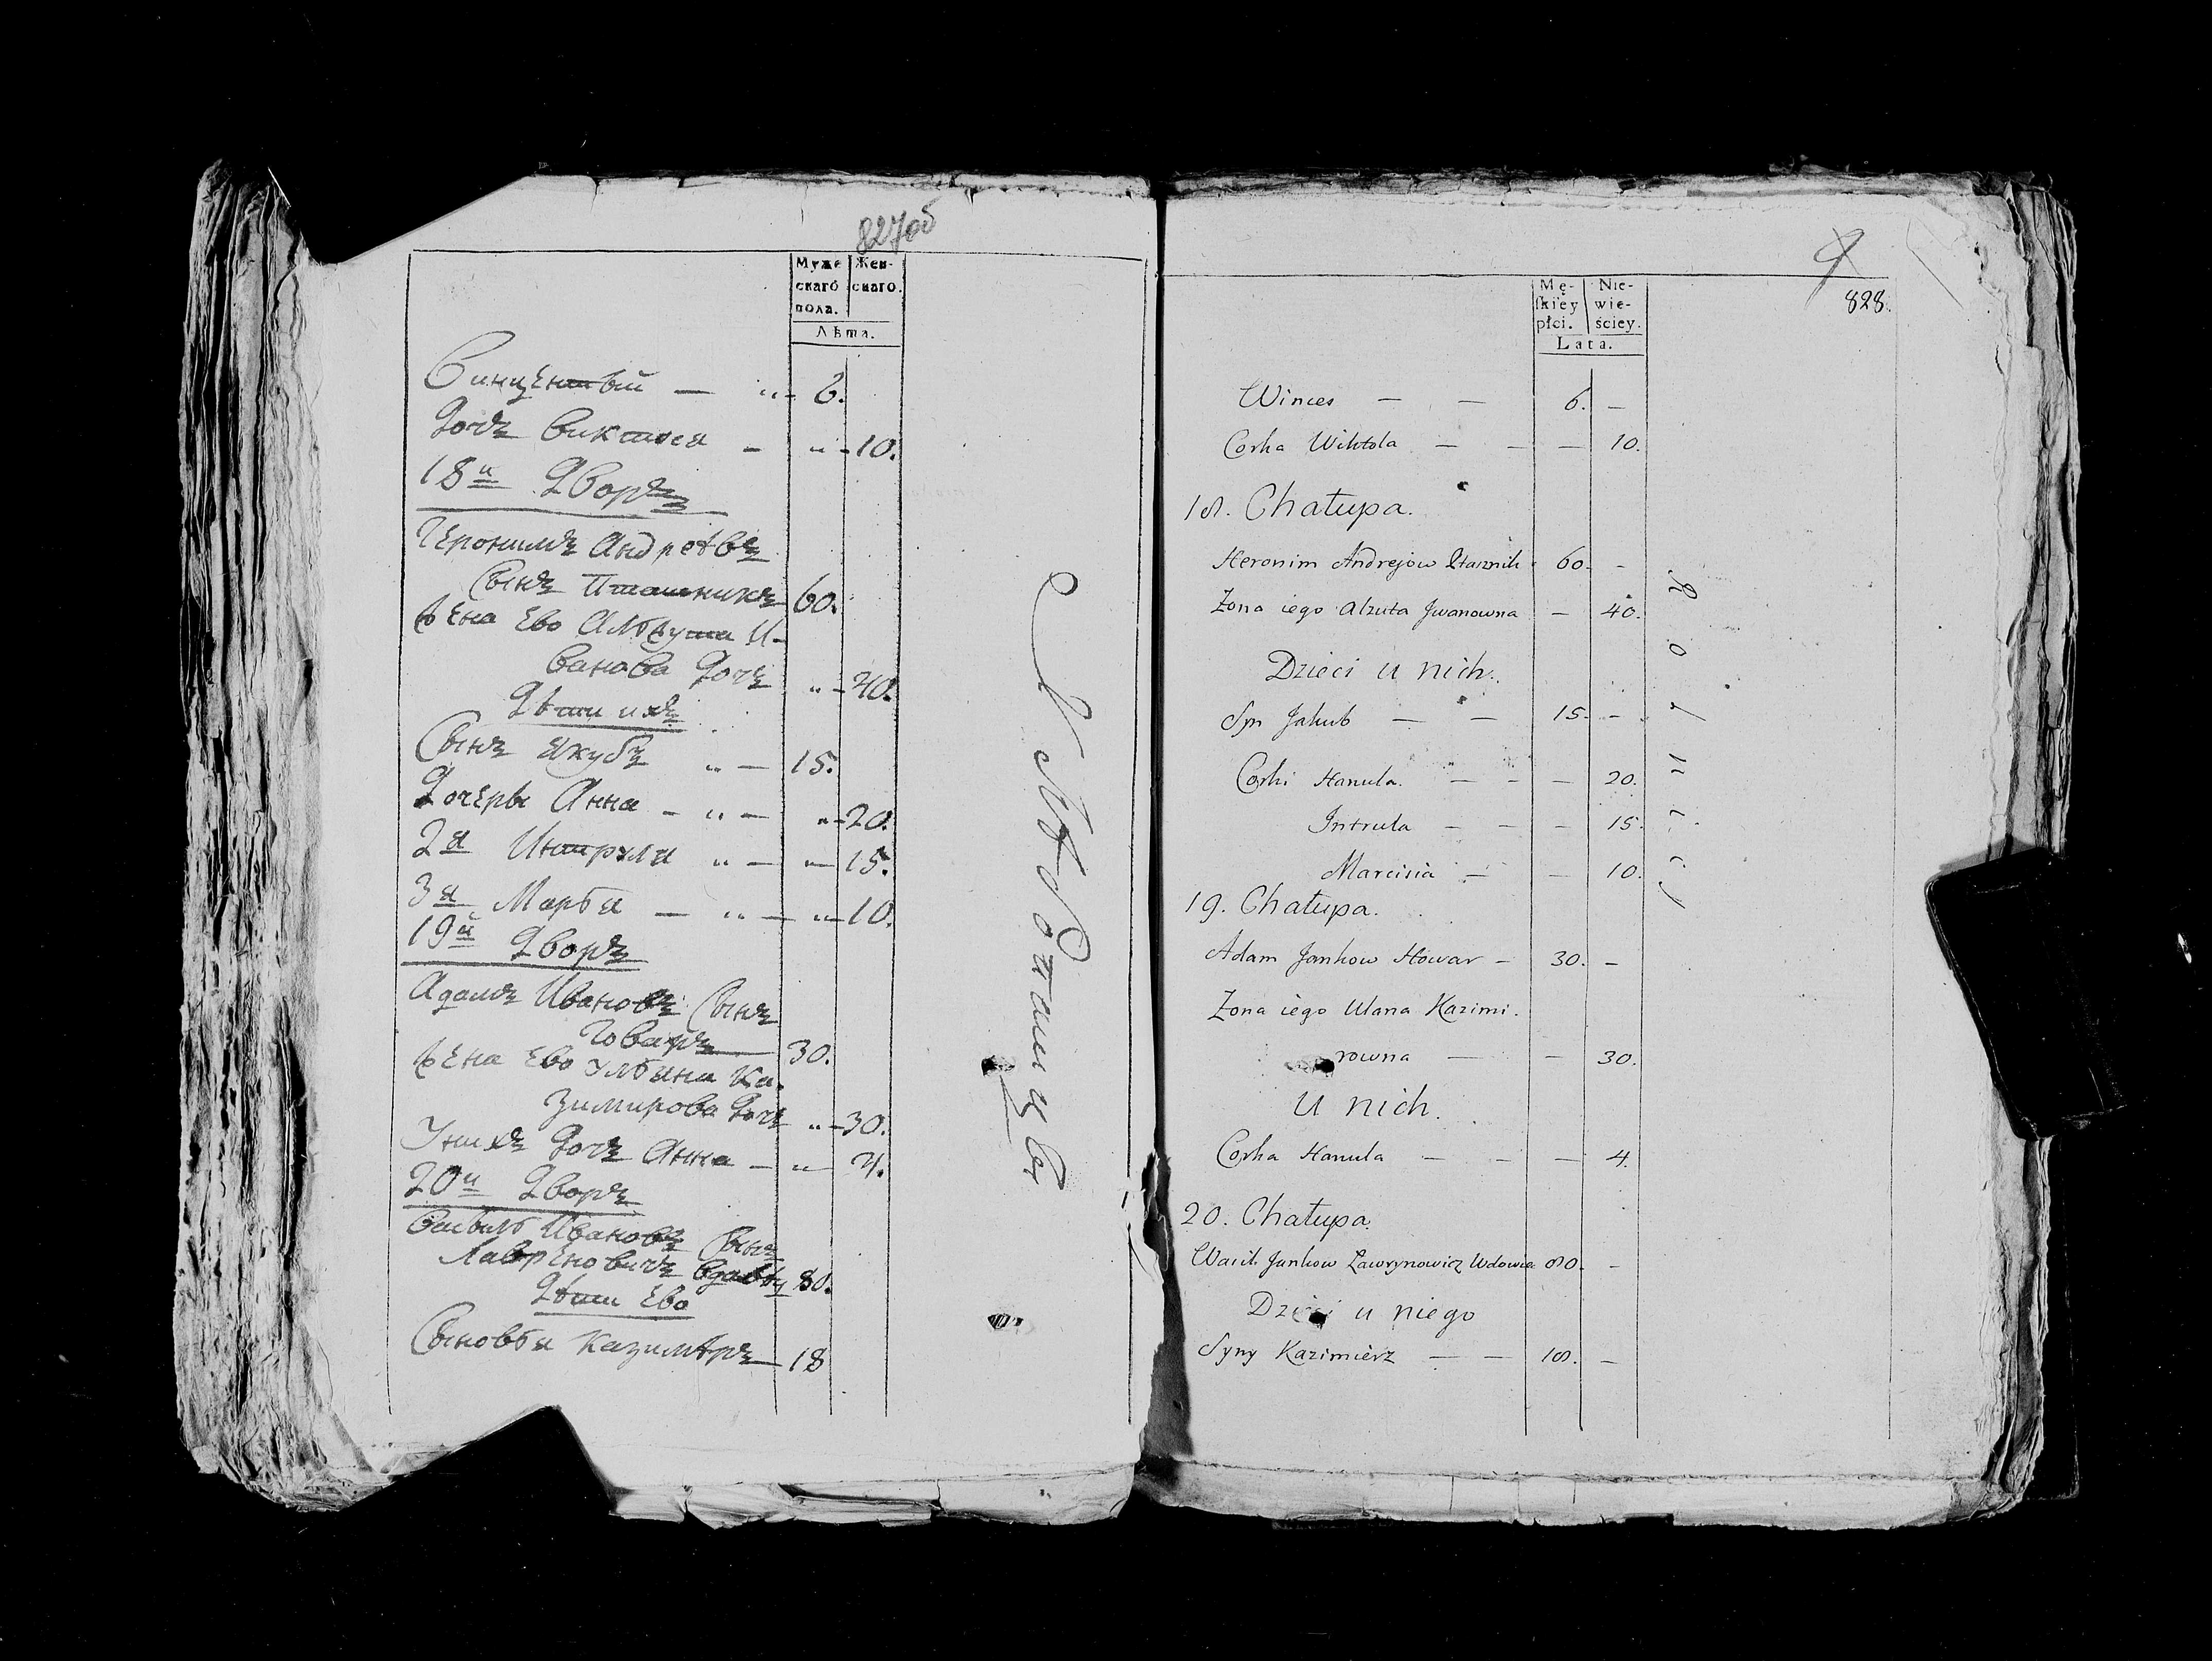 827об
Муже
скаго
пола.
Жен-
скаго.
Лѣта.
Винцентый — „ - 6.
Дочъ Виктося - „ - 10.
18й Дворъ
Героним Андреевъ
Сынъ Пташникъ 60.
Жена Ево Альжута И-
ванова Дочъ „ - 40.
Дѣти ихъ
Сынъ Якубъ „ — 15.
Дочеры Анна - „ — „ - 20.
2я Интруля „ — „ — 15.
3я Марья — „ — „ — 10.
19й Дворъ
Адамъ Ивановъ Сынъ
Говаръ 30.
Жена Ево Ульяна Ка-
зимирова Дочъ „ - 30.
Унихъ Дочъ Анна — „ — 4.
20й Дворъ
Васьиль Ивановъ Сынъ
Лавреновичъ вдовец 80.
Дѣти Ево
Сыновья Казимѣръ — 18
828.
Mę-
skiey
płci.
Nie-
wie-
ściey.
Lata.
Winces — — 6. —
Corka Wiktola — — — 10.
18. Chałupa.
Heronim Andrejow Ptasznik 60. -
Zona iego Alzuta Jwanowna — 40.
Dzieci u nich.
Syn Jakub — — 15. —
Corki Hanula. — - — 20.
Intrula — — - 15.
Marcisia — — 10.
19. Chałupa.
Adam Jankow Howar — 30. —
Zona iego Ulana Kazimi.
rowna — — 30.
U nich.
Corka Hanula — — — 4.
20. Chałupa.
Wasil Jankow Ławrynowicz Wdowiec 80. -
Dzieci u niego
Syny Kazimierz — — 18. —